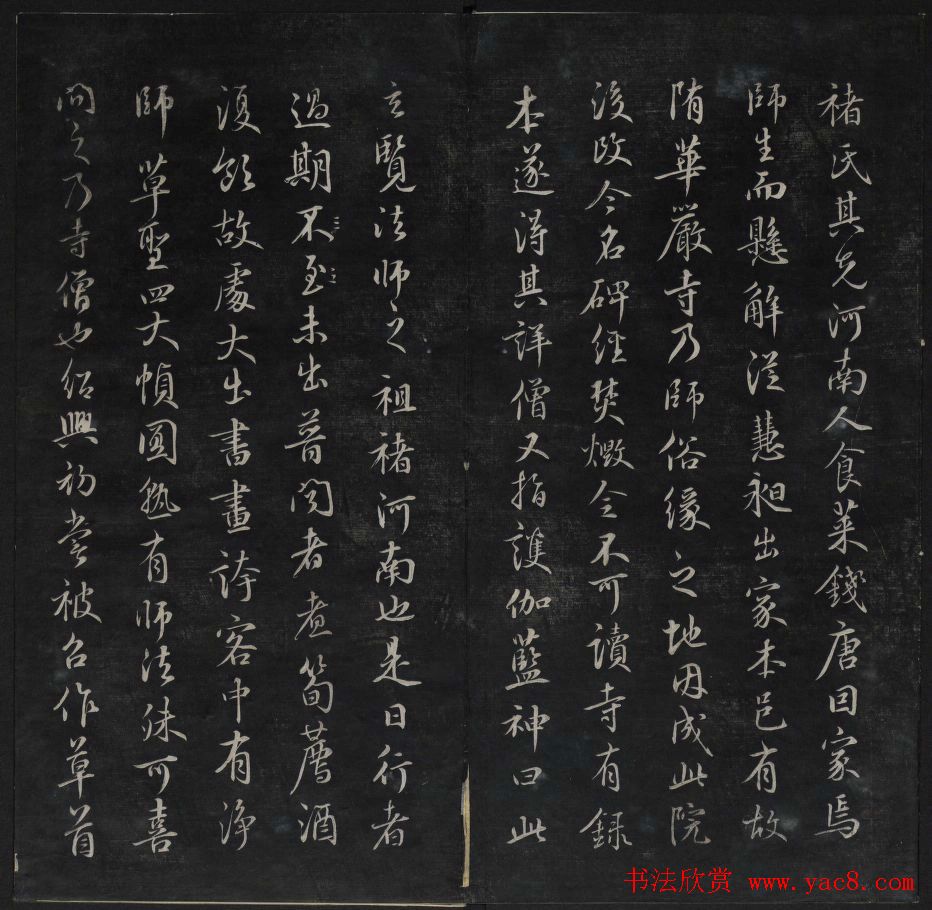 褚氏其先河南人食菜錢唐因家焉
師生而懸解從慧昶出家本邑有故
隋華嚴寺乃師俗緣之地因成此院
後改今名碑經焚燬今不可讀寺有錄
本遂得其詳僧又指護伽藍神曰此
玄覽法師之祖褚河南也是日行者
過期不至未出普闍者煮筍薦酒
復飲故處大出書畫誇客中有淨
師草聖四大幀圓熟有师法殊可喜
問之乃寺僧也紹興初嘗被召作草首
书法欣赏 www.yac8.com